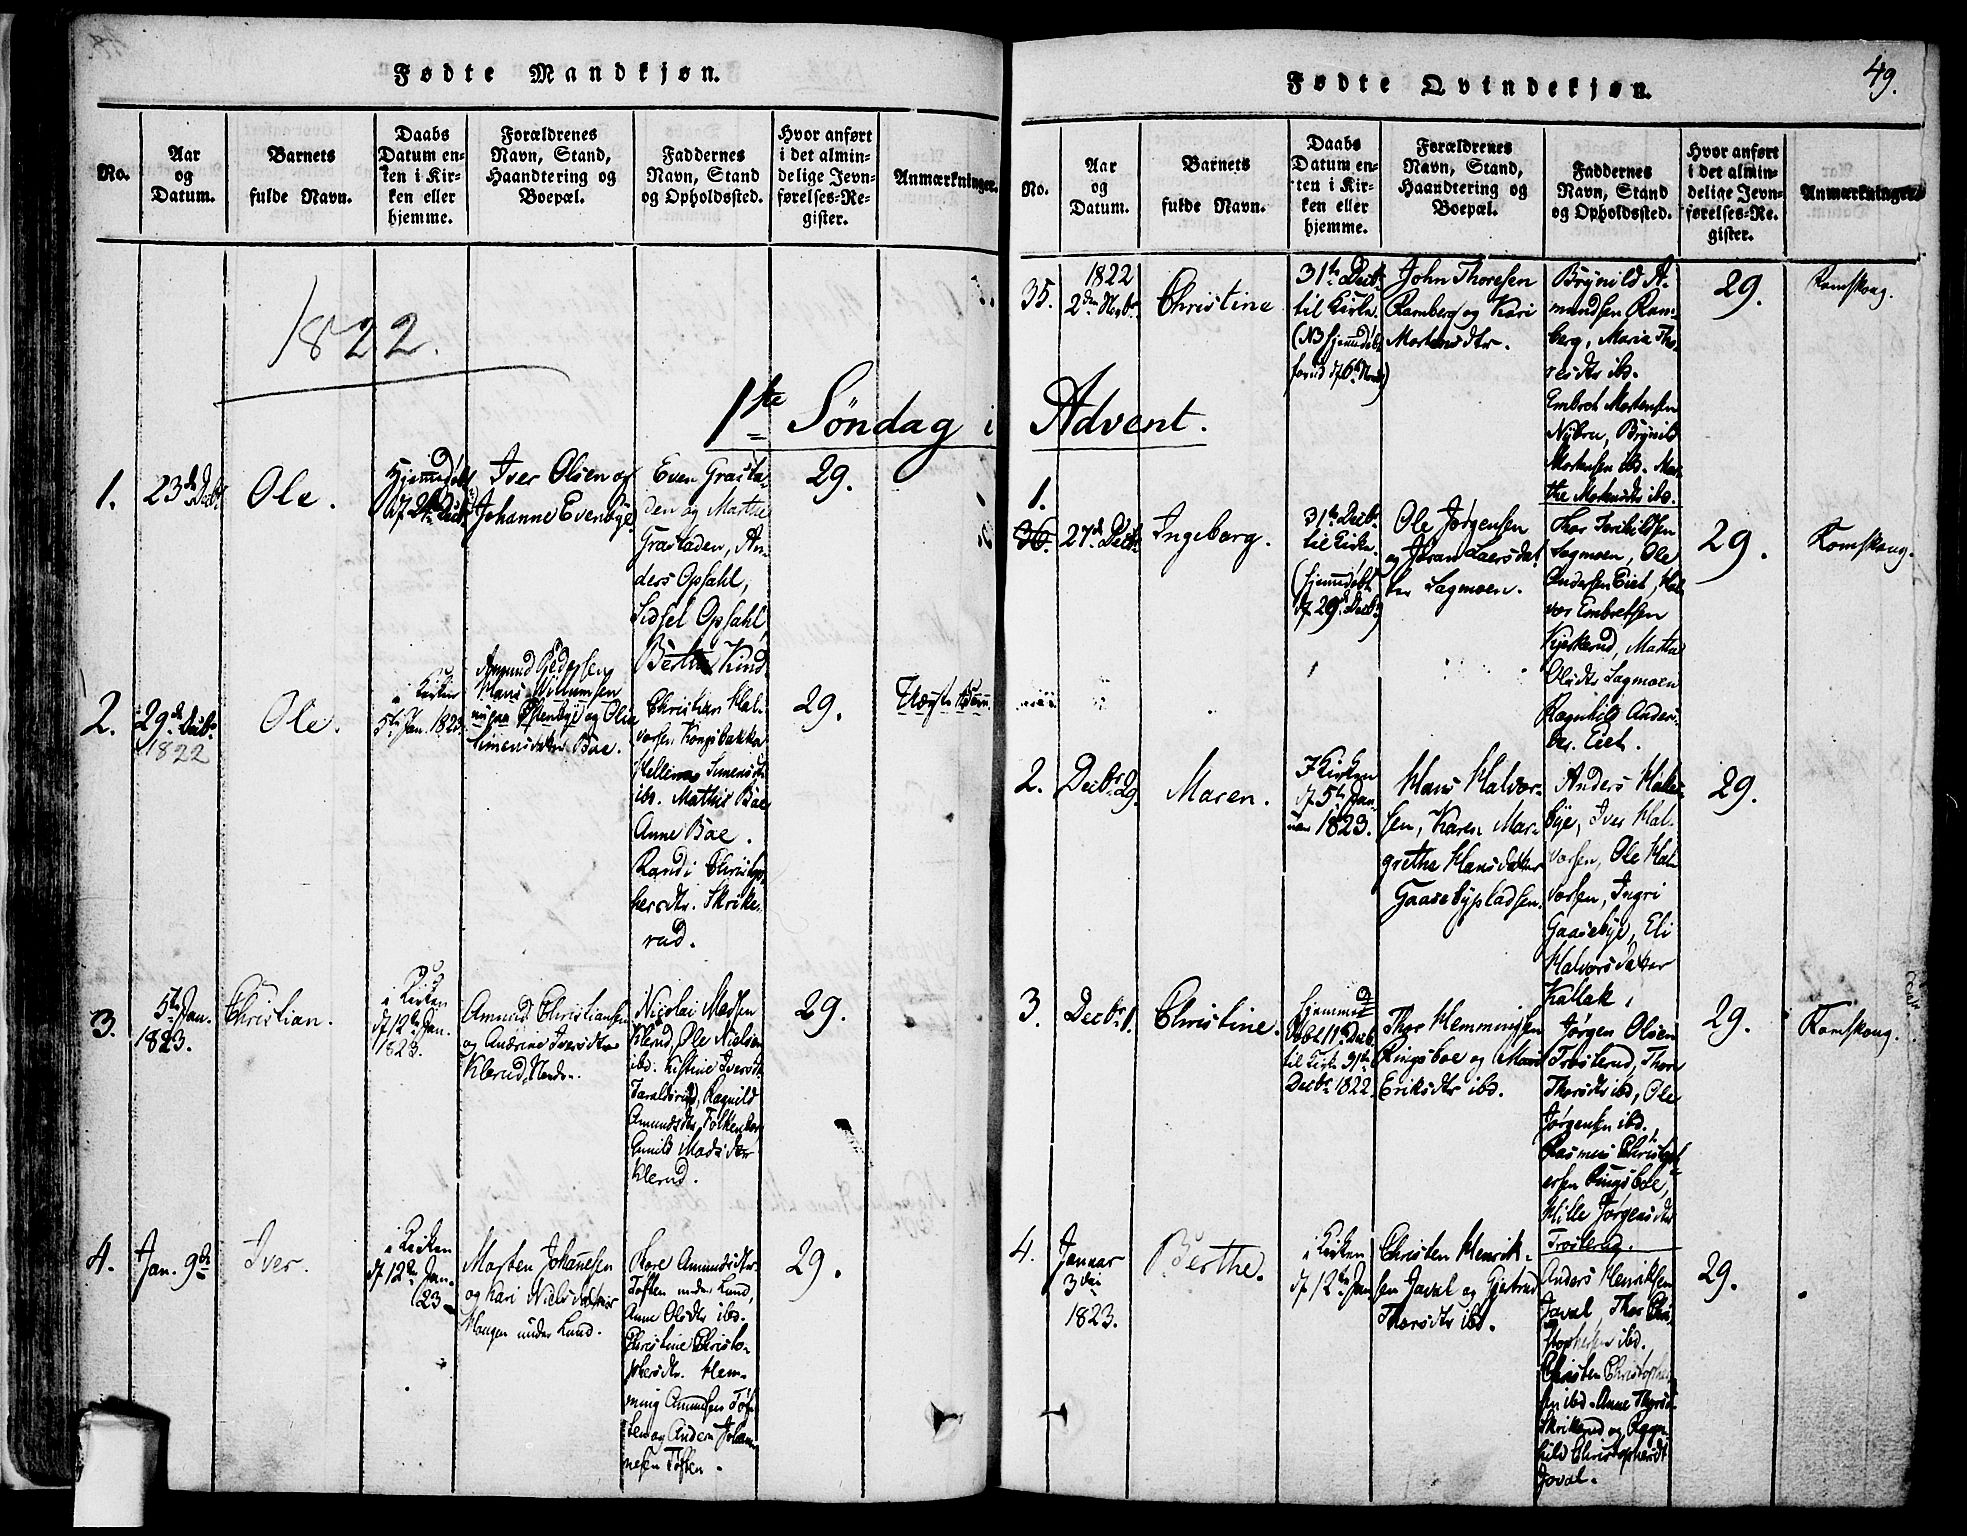 Fødte Mandkjøn.
No.
Aar
og
Datum.
Barnets
fulde Navn.
Daabs
Datum en-
ten i Kir-
ken eller
hjemme.
Forældrenes
Navn, Stand,
Haandtering og
Boepæl.
Faddernes
Navn, Stand
og Opholdssted.
Hvor anført
i det almin-
delige Jevn-
førelses-Re-
gister.
Anmærkninger.
1822.
1ste Søndag i Advent.
1.
23de Decbr
Ole.
Hjemmedøbt
Iver Olsen og
Johanne Evenbye
Even Grasta-
den og Marthe
Grastaden, An-
ders Opsahl,
Sidsel Opsahl,
Berthe Kind
29.
2.
29de Decbr.
1822
Ole.
i Kirken
5te Jan. 1823.
Amund Pedersen
Hans Willumsen
Østenbye og Olia
Simensdatter Bae.
Christian Hal-
vorsen Kongsbakke
Hellene Simensdtr
ibd. Mathis Bae
Anne Bae.
Randi Christop-
hersdtr. Skrike-
rud.
29.
3.
5te Jan.
1823.
Christian.
i Kirken
d. 12te Jan.
1823.
Amund Christiansen
og Andrine Iversdtr
Klerud,
Nicolai Madsen
Klerud, Ole Nielsen
ibd. Kistine Iversdtr
Taraldsrud, Ragnild
Amundsdtr Folkenborg
Gunild Madsdatter
Klerud.
29.
4.
Jan. 9de
Iver.
i Kirken
d. 12te Jan.
123
Morten Johannesen
og Kari Nielsdatter
Haugen under Lund.
Tore Amundsdtr.
Toften under Lund,
Anne Olsdtr ibd.
Christine Christo-
phersdtr. Hem-
ming Amundsen Tof-
ten og Anders Johan-
nesen Toften.
29.
Fødte Qvindekjøn.
49.
No.
Aar
og
Datum.
Barnets
fulde Navn.
Daabs
Datum en-
ten i Kir-
ken eller
hjemme.
Forældrenes
Navn, Stand,
Haandtering og
Boepæl.
Faddernes
Navn, Stand
og Opholdssted.
Hvor anført
i det almin-
delige Jevn-
førelses-Re-
gister.
Anmærkninger
35.
1822
2den Novbr.
Christine
31te Decbr.
til Kirke.
(NB hjemmedøbt
forud d. 6te Novbr)
John Thoresen
Ramberg og Kari
Mortensdtr.
Brynild A-
mundsen Ram-
berg, Maria Tho-
resdtr ibd.
Embret Mortensen
Nybru, Brynild
Mortensen ibd. Mar-
the Mortensdtr ibd.
29.
Romskoug.
1.
36.
27de Decbr.
Ingeborg.
31te Decbr.
til Kirke.
(hjemmedøbt
d. 29de Decbr)
Ole Jørgensen
og Jøran Laersdat-
ter Sagmoen.
Thor Torkildsen
Sagmoen, Ole
Andersen Eiet, Hal-
vor Embretsen
Kjerkerud, Matta
Olsdtr Sagmoen
Ragnhild Anders-
dtr. Eiet.
29.
Romskoug.
2.
Decbr. 29.
Maren.
I Kirken
d. 5te Jan-
uar 1823.
Hans Halvor-
sen, Karen Mar-
grethe Hansdatter
Gaasebypladsen.
Anders Hake-
bye, Iver Hal-
vorsen, Ole Hal-
vorsen, Ingri
Gaasebye, Eli
Halvorsdatter
Kallak.
29.
3.
Decbr 1.
Christine.
Hjemme-
døbt 11te Decb.
til Kirke 31te
Decbr 1822.
Thor Hemmingsen
Ringsboe og Mari
Eriksdtr ibd.
Jørgen Olsen
Trosterud, Thore
Thorsdtr ibd, Ole
Jørgensen ibd.
Rasmus Christoph-
ersen Ringsboe,
Hille Jørgensdtr
Trosterud.
29.
Romskoug.
4.
Januar
3die
1823.
Berthe.
i Kirken
d. 12te Jan
Christen Henrik-
sen Javal og Gjertrud
Thorsdtr ibd.
Anders Henriksen
Javal, Thor Chri-
stophersen ibd.
Christen Christopher-
sen ibd. Anne Thorsdtr
Skrikerud og Ragn-
hild Christophersdtr
Javal.
29.